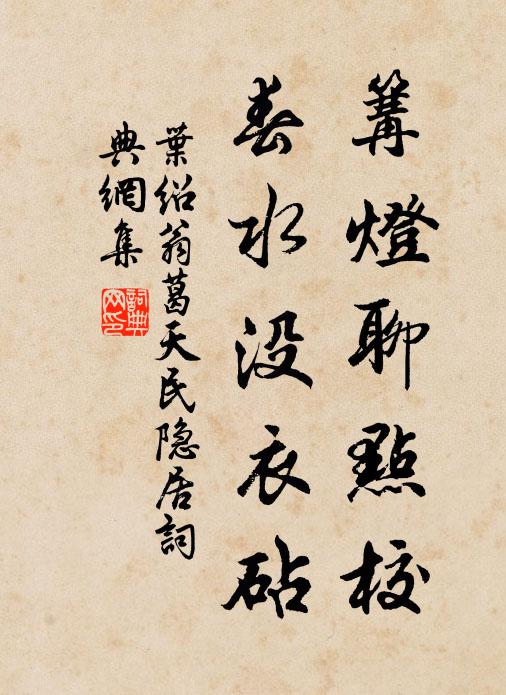 篝燈聊點校
春水没衣砧
葉紹翁葛天民隐居詞
典網集
詞典
网印